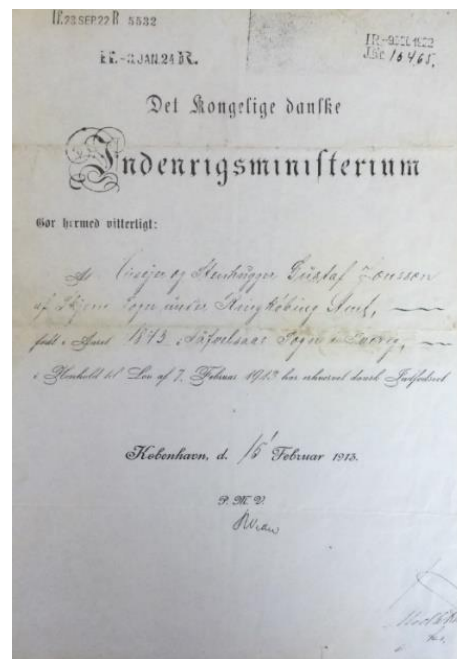 I.23.SEP.22 R 5532
I.R.-9.DEC.1922
J.Nr. 15465.
E.R.-3.JAN.24
Det Kongelige danske
Indenrigsministerium
Gør hermed vitterligt:
At Huusejer og Stenhugger Gustaf Jonsson
af Skjern Sogn under Ringkøbing Amt,
født i Aaret 1843 i Sogn i Sverig,
i Henhold til Lov af 7. Februar 1913 har erhvervet dansk Indfødsret
København, d. 15 Februar 1913.
P. M. V.